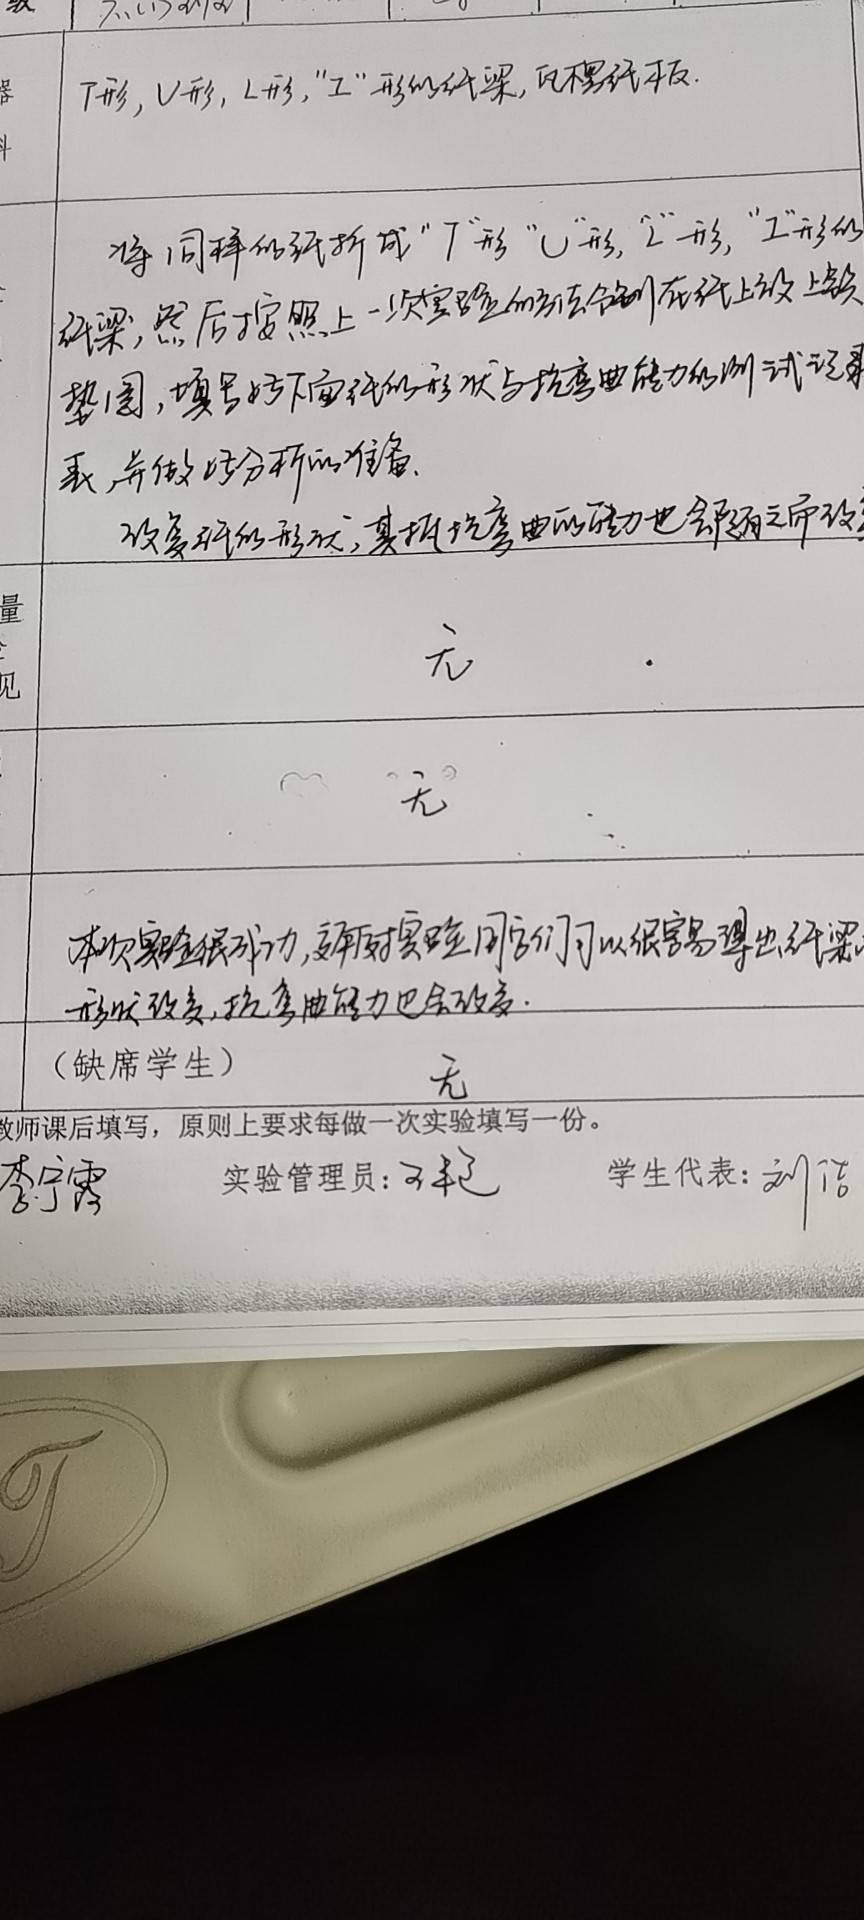 级
器 T形,U形,L形,"工"形的纸梁,瓦楞纸板.
料
将同样的纸折成"T"形"U"形,"L"形,"工"形的
纸梁,然后按照上一次实验的方法分别在纸上放上铁
垫圈,填写好下面纸的形状与抗弯曲能力的测试记录
表,并做好分析的准备.
改变纸的形状,其抵抗弯曲的能力也会随之而改变
量
见
无
无
本次实验很成功,实验同学们可以很容易得出纸梁
形状改变,抗弯曲能力也会改变.
(缺席学生) 无
教师课后填写,原则上要求每做一次实验填写一份。
李宁霞 实验管理员: 学生代表:刘洁
T